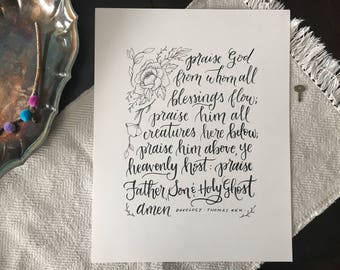 praise God
from whom all
blessings flow;
praise him all
creatures here below;
praise him above, ye
heavenly host; praise
Father, Son & Holy Ghost
amen DOXOLOGY · THOMAS KEN